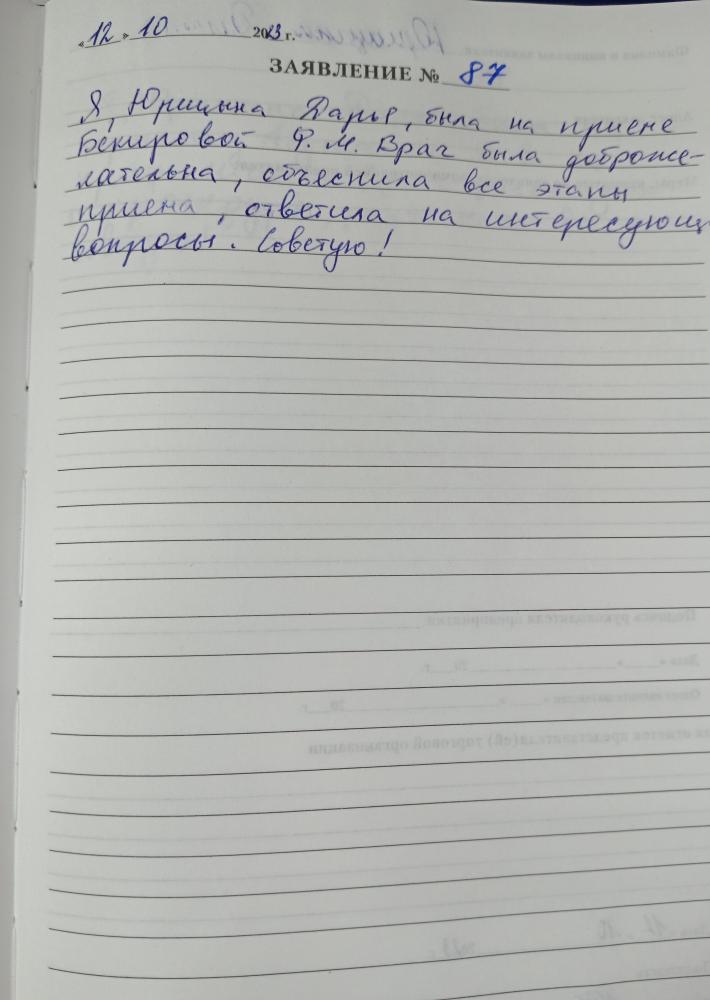 «12» 10 2023 г.
ЗАЯВЛЕНИЕ № 87
Я, Юрицына Дарья, была на приеме
Бекировой Ф. М. Врач была доброже-
лательна, объеснила все этапы
приема, ответила на интересующ
вопросы. Советую!
Подпись руководителя предприятия